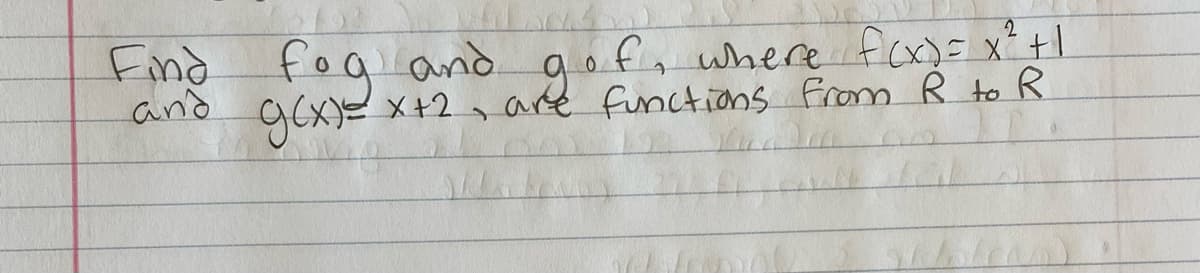 Find fog and gof, where f(x) = x² +1
and g(x) = x+2, are functions from R to R